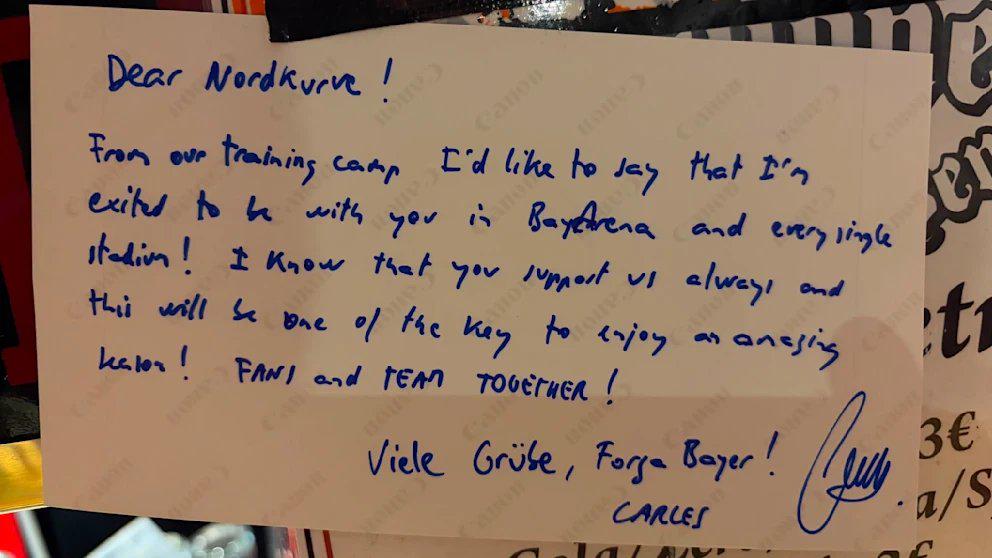 Dear Nordkurve!
From our training camp I'd like to say that I'm
exited to be with you in BayArena and every single
stadium! I know that you support us always and
this will be one of the key to enjoy an amazing
season! FANS and TEAM TOGETHER!
Viele Grüße, Forza Bayer!
CARLES
3€